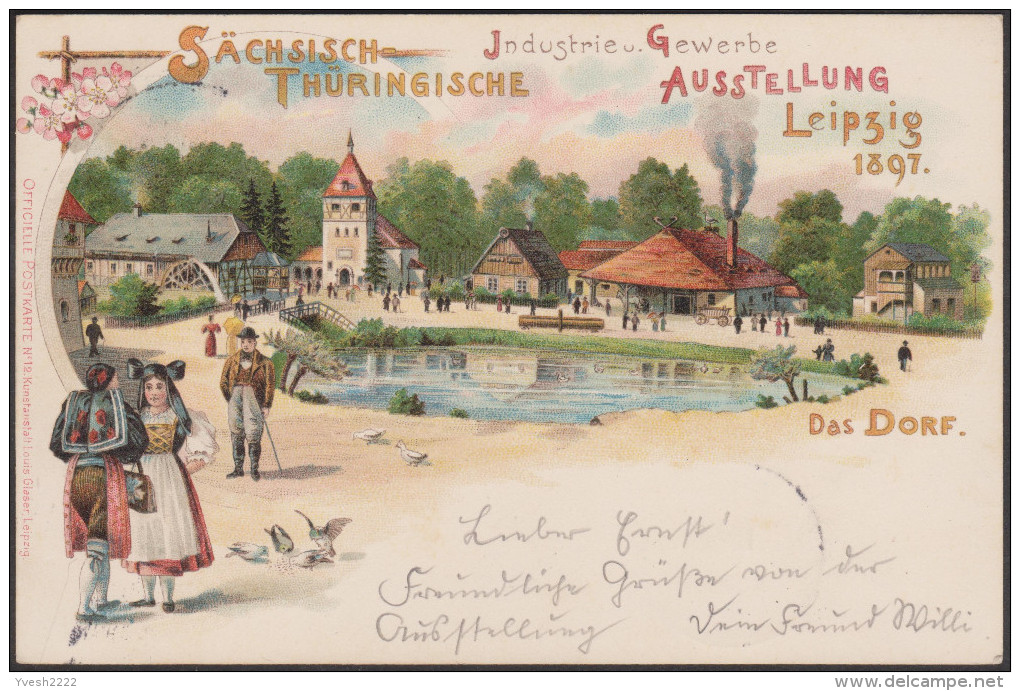 SÄCHSISCH-
THÜRINGISCHE
Industrie u. Gewerbe
AUSSTELLUNG
Leipzig
1897.
OFFICIELLE POSTKARTE No 12. Kunstanstalt Louis Glaser, Leipzig.
Das DORF.
Lieber Ernst!
Freundliche Grüße von der
Ausstellung Dein Freund Willi
Yvesh2222
www.delcampe.net